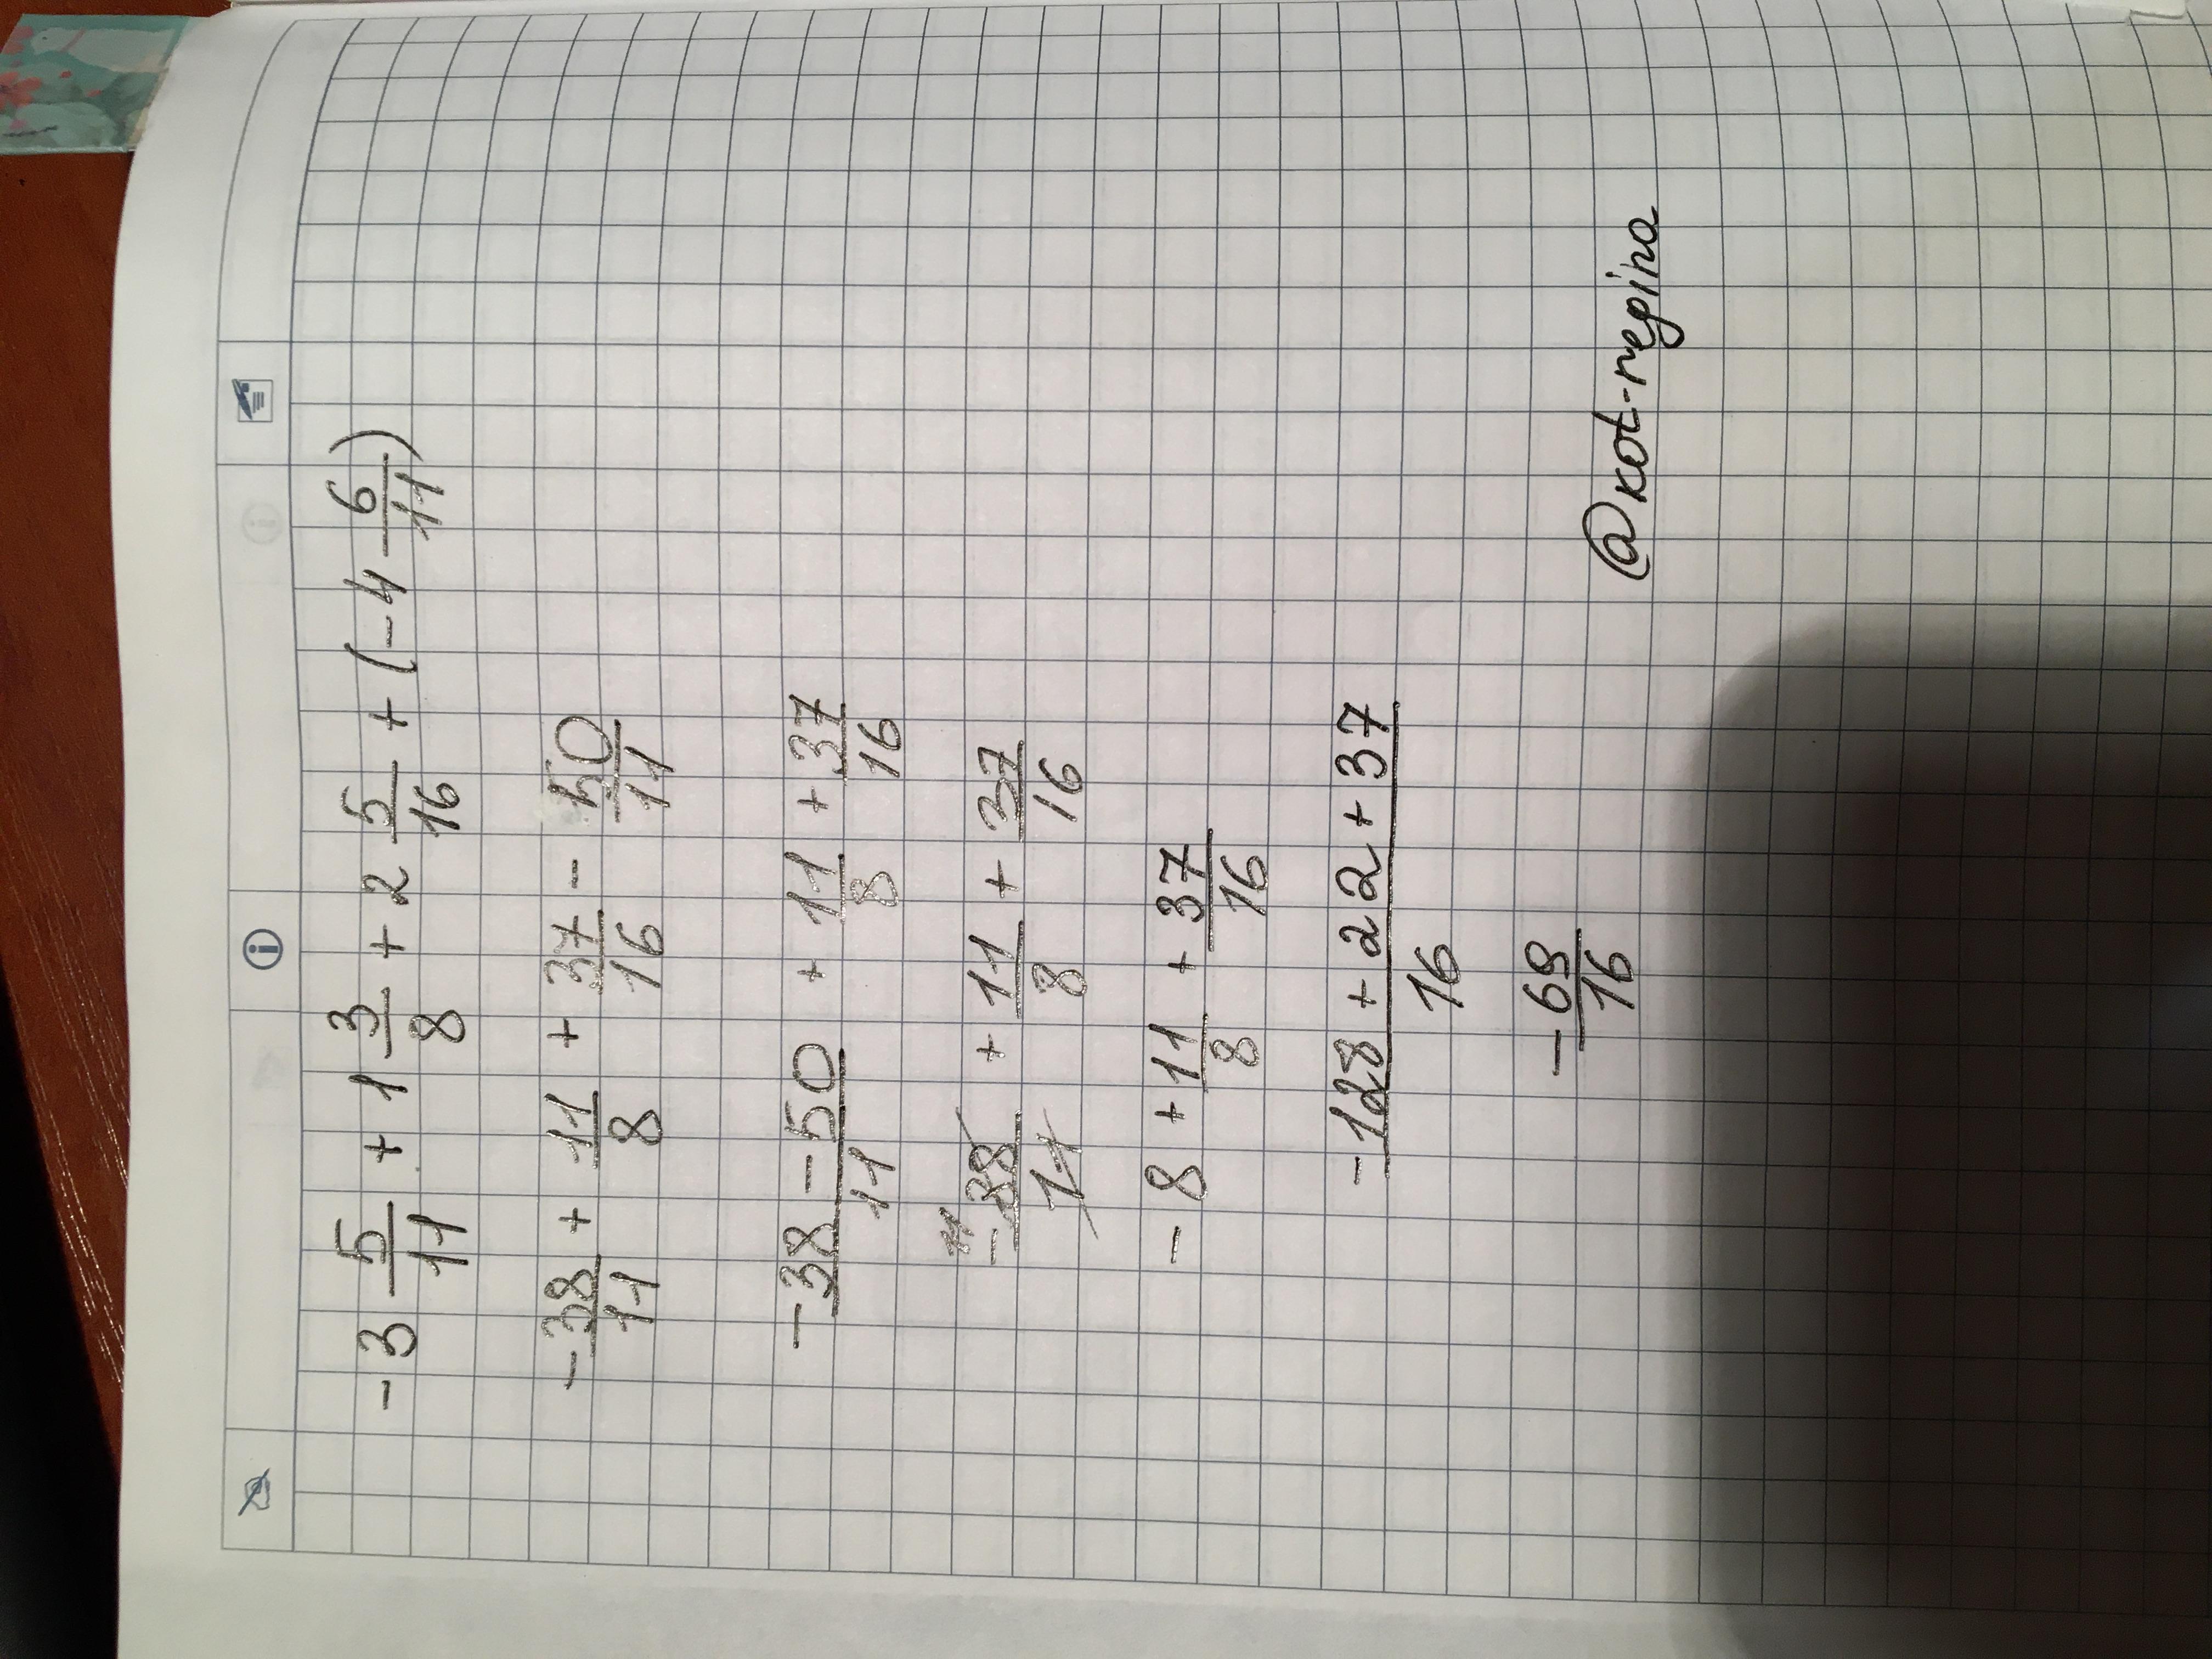 -3 5/11 + 1 3/8 + 2 5/16 + (-4 6/11)
-38/11 + 11/8 + 37/16 - 50/11
-38-50/11 + 11/8 + 37/16
-88/11 + 11/8 + 37/16
-8 + 11/8 + 37/16
-128+22+37/16
-69/16
@kot-regina